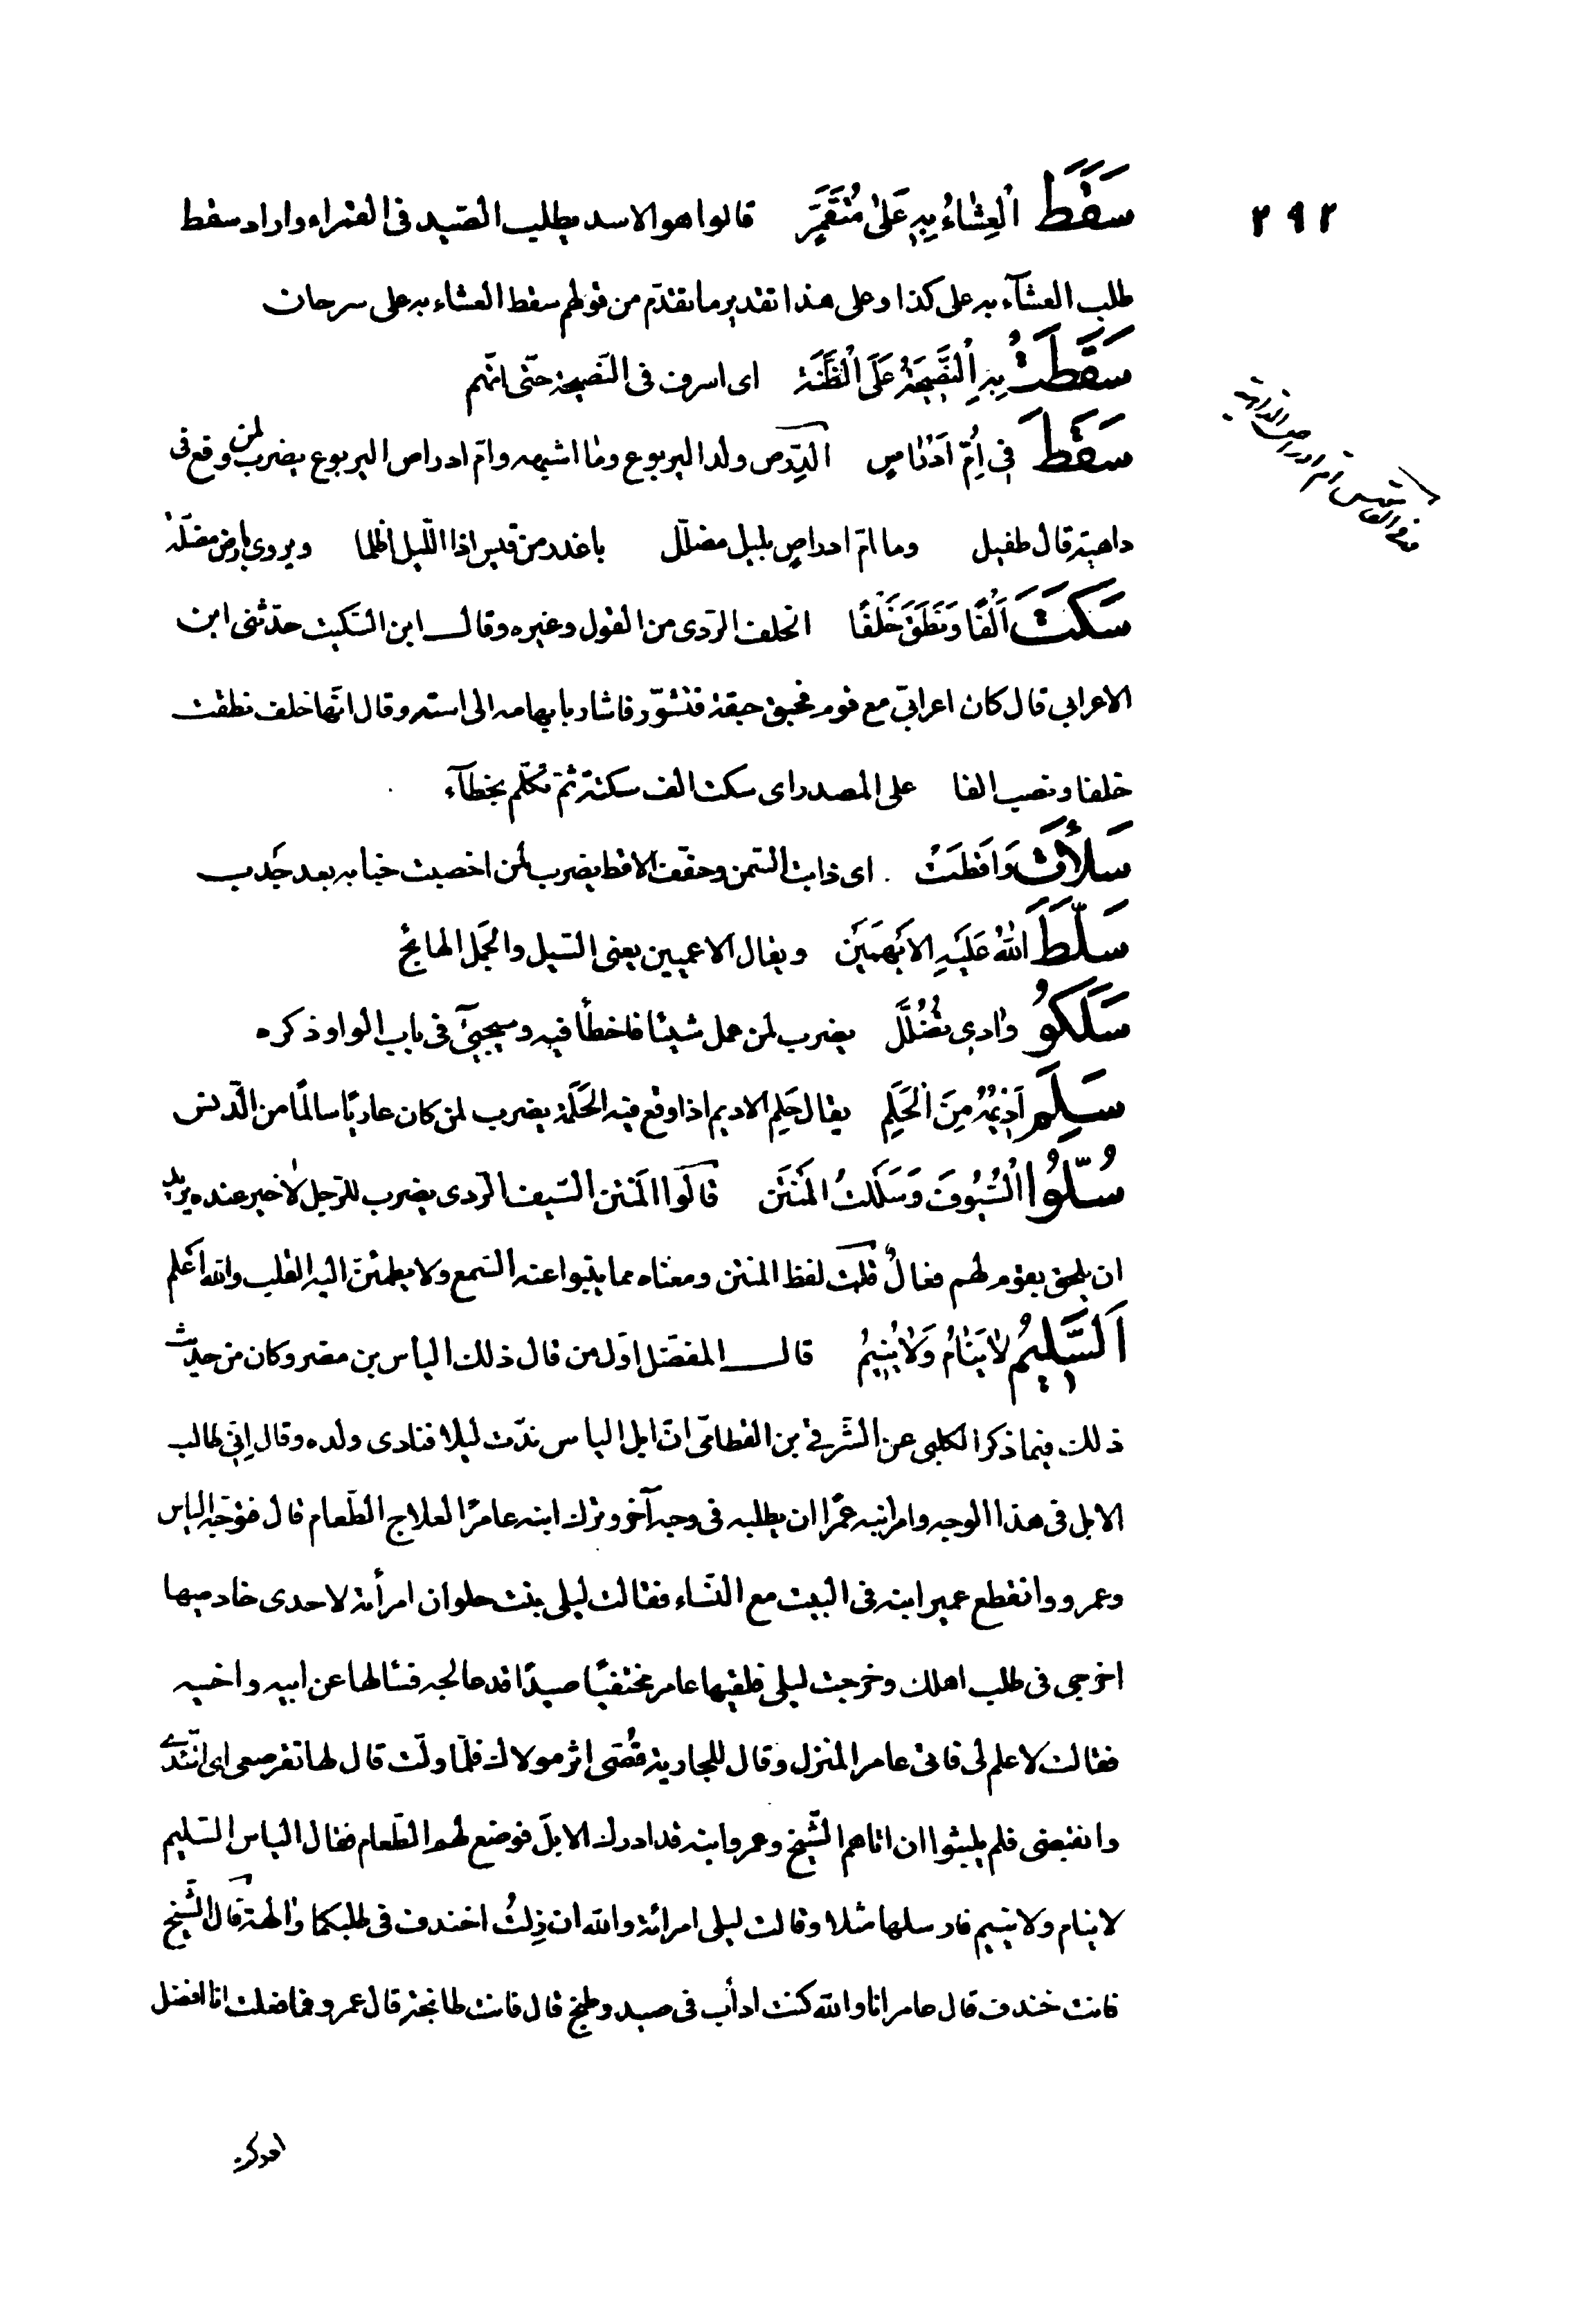 ٢٩٢
سَقَطَ اَلْعِشَاءُ بِهِ عَلىٰ مُتَقَمِّرٍ قالوا هو الاسد يطلب الصّيد فى القمراء واراد سقط
طلب العشآء به على كذا وعلى هذا تقدير ما تقدّم من قولهم سقط العشاء به على سرحان
سَقَطَتْ بِهِ اَلْنَّصِيحَةُ عَلَى اَلْظَّنَّةِ اى اسرف فى النّصيحة حتّى اتّهم
سَقَطَ فِى اُمِّ اَدْرٰاصٍ الدِّرص ولد اليربوع وما اشبهه وامّ ادراص اليربوع يضرب لمن وقع فى
داهية قال طفيل وما امّ ادراصٍ بليل مضلّل باغدر من قيس اذا اللّيل اظلما ويروى بارض مضلّة
سَكَتَ اَلْفًا وَنَطَقَ خَلْفًا الخلف الرّدى من القول وغيره وقال ابن السّكيت حدّثنى ابن
الاعرابى قال كان اعرابىّ مع قوم فحبق حبقة فتشوّر فاشار بابهامه الى استه وقال انّها خلف نطقت
خلفا ونصب الفا على المصدر اى سكت الف سكتة ثمّ تكلّم بخطآء
سَلأَتْ وَاَقَطَتْ اى ذابت السّمن وجفّفت الاقط يضرب لمن اخصبت جنابه بعد جَدب
سَلَّطَ اللهُ عَلَيْهِ الاَيْهَمَيْنِ ويقال الاعميين يعنى السّيل والجَمل الهائج
سَلَكُوا وٰادِى تُضُلِّلَ يضرب لمن عمل شيئا فاخطأ فيه وسيجيئ فى باب الواو ذكره
سَلِمَ اَدِيمُهُ مِنَ اَلْحَلَمِ يقال حَلِم الاديم اذا وقع فيه الحَلَمة يضرب لمن كان عاريًا سالمًا من الدّنس
سُلُّوا اَلْسُّيُوفَ وَسَلَلْتُ المَنْتَنَ قالوا المَنتن السّيف الرّدى يضرب للرّجل لا خير عنده يريد
ان يلحق بقوم لهم فعال قلت لفظ المنتن ومعناه مما ينبوا عنه السّمع ولا يطمئنّ اليه القلب والله اَعلم
اَلسَّلِيمُ لٰا يَنٰامُ وَلٰا يُنِيمُ قال المفضّل اوّل من قال ذلك الياس بن مضر وكان من حديث
ذلك فيما ذكر الكلبى عن الشّرقىّ بن القطامىّ انّ ابل الياس ندّت ليلا فنادى ولده وقال اِنّى طالب
الابل فى هذا الوجه وامر ابنه عمرًا ان يطلبه فى وجه آخر وترك ابنه عامرًا لعلاج الطّعام قال فتوجّه الياس
وعمرو وانقطع عمير ابنه فى البيت مع النّساء فقالت ليلى بنت حلوان امرأته لاحدى خادميها
اخرجى فى طلب اهلك وخرجت ليلى فلقيها عامر محتقبًا صيدًا قد عالجه فسئالها عن ابيه واخيه
فقالت لا علم لى فاتى عامر المنزل وقال للجارية قُصّى اثر مولاك فلمّا ولّت قال لها تقرصعى اى اتّئدى
وانقبضى فلم يلبثوا ان اتاهم الشّيخ وعمرو ابنه قد ادرك الابل فوضع لهم الطّعام فقال الياس السّليم
لا ينام ولا ينيم فارسلها مثلا وقالت ليلى امرائته والله ان زِلتُ اخندف فى طلبكما والهة قال الشّيخ
فانت خندف قال عامر انا والله كنت ادأب فى صيد وطبخ قال فانت طابخة قال عمرو فما فعلت انا افضل